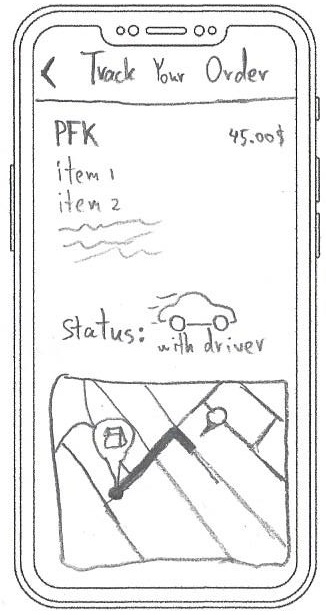 < Track Your Order
PFK 45.00$
item 1
item 2
Status:
with driver